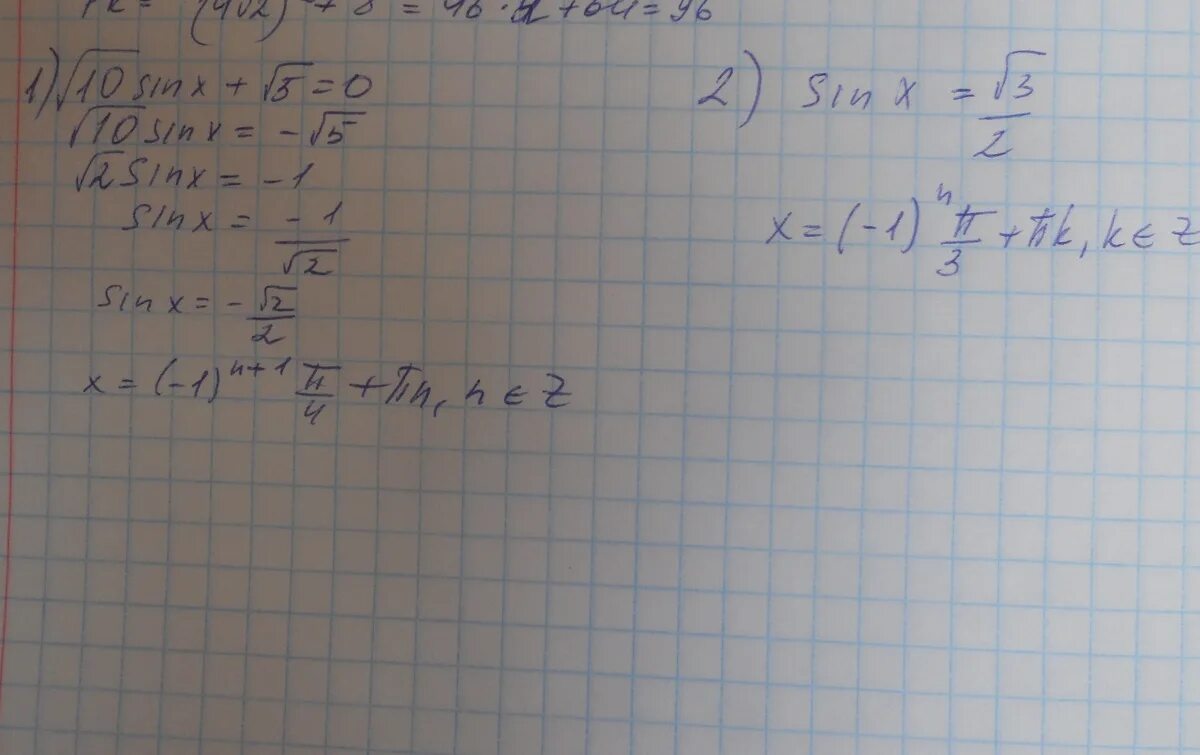 (4√2) + 8 = 16 · 2 + 64 = 96
1) √10 sin x + √5 = 0
√10 sin x = - √5
√2 sin x = -1
sin x = -1/√2
sin x = - √2/2
x = (-1)ⁿ⁺¹ π/4 + πn, n ∈ Z
2) sin x = √3/2
x = (-1)ⁿ π/3 + πk, k ∈ Z